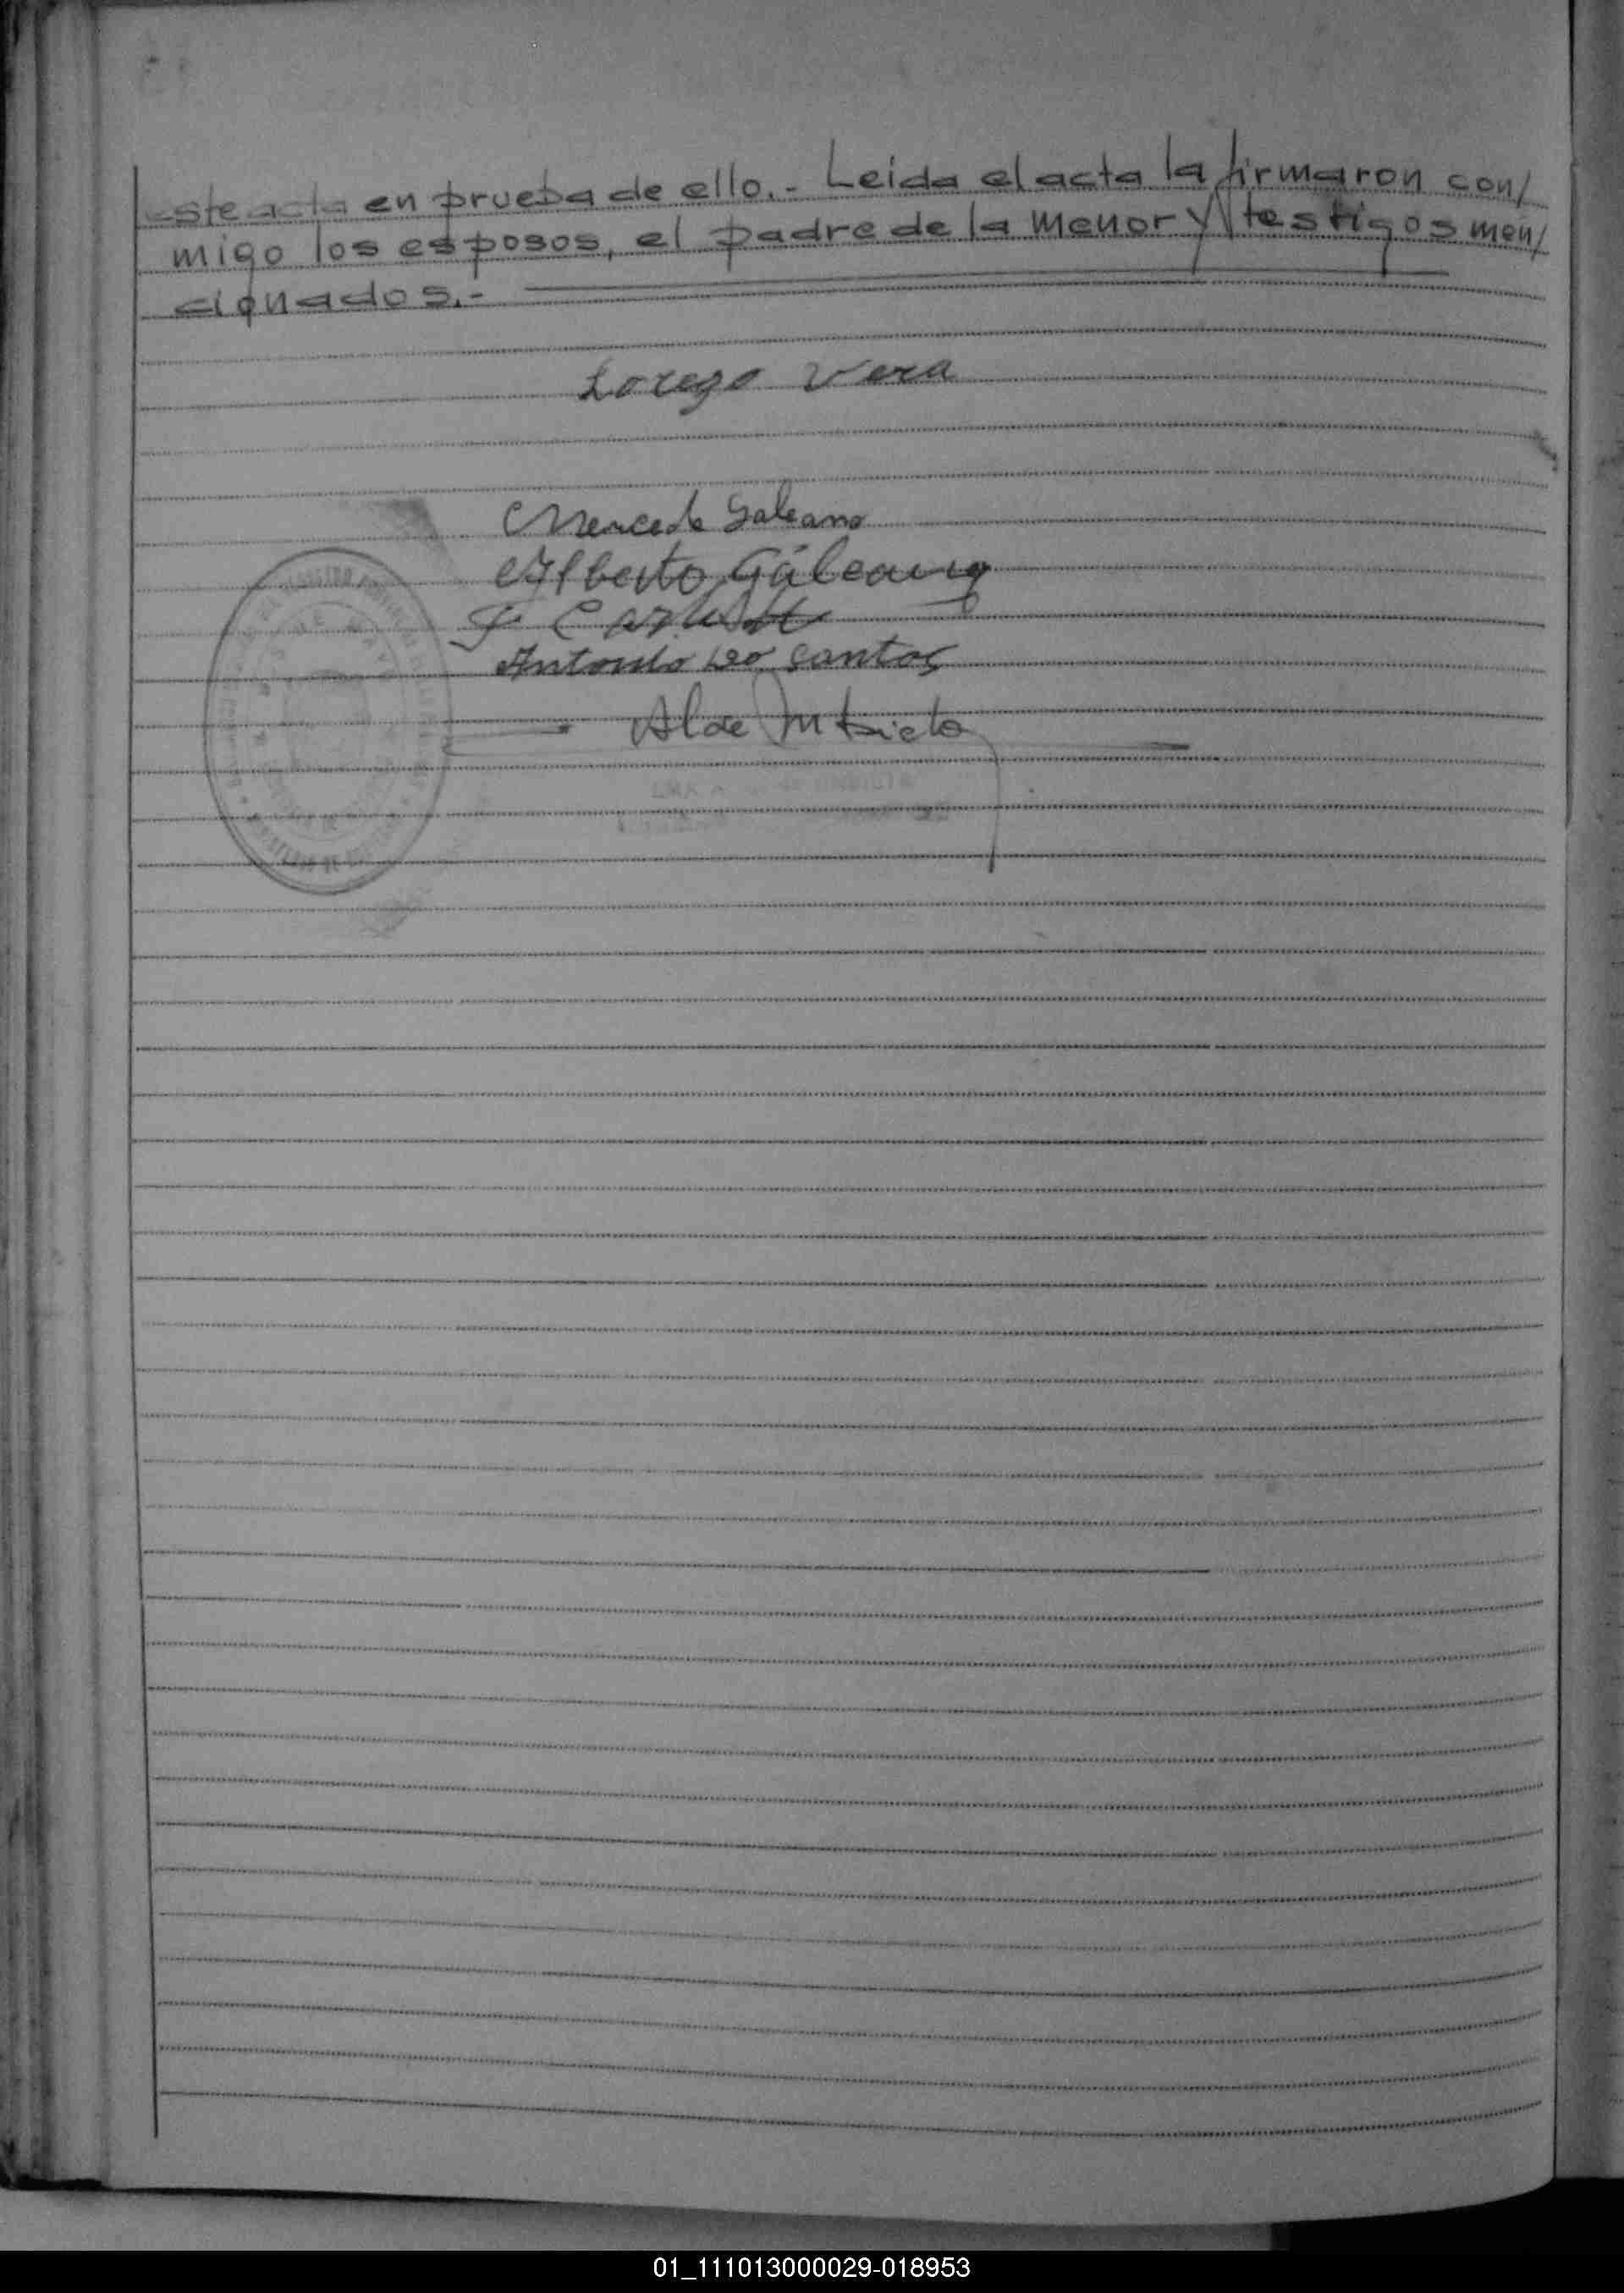 este acta en prueba de ello.- Leida el acta la firmaron con/
migo los esposos, el padre de la menor y testigos men/
cionados.-
Lorezo Vera
Mercede Galeano
Alberto Galeano
Antonio Dos Santos
01_111013000029-018953